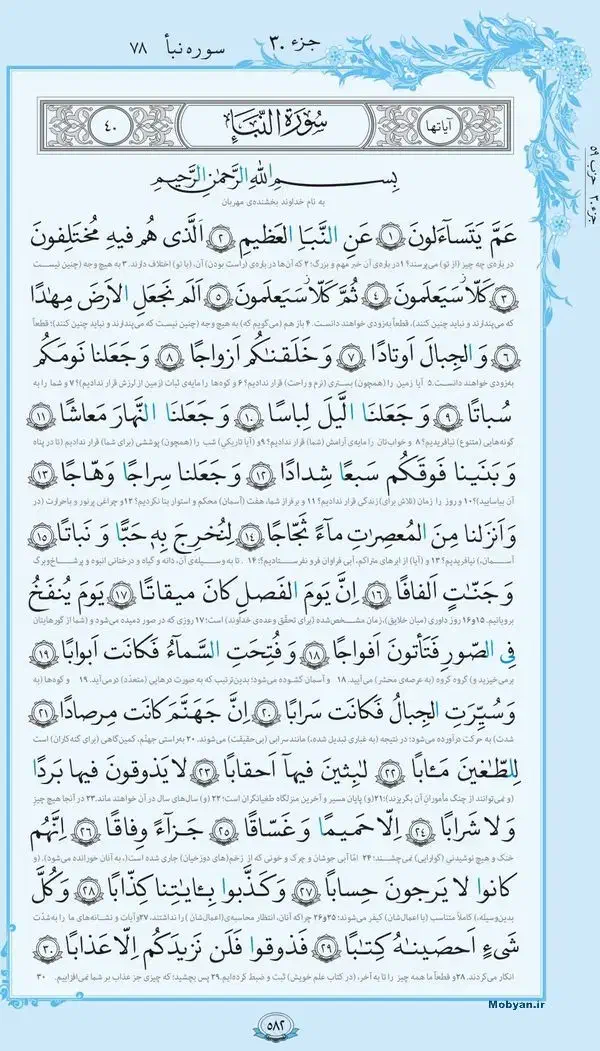 جزء ۳۰
سوره نبأ ۷۸
حزب ۵۹
جزء ۳۰
آیاتها
سُورَةُ النَّبَإِ
۴۰
بِسمِ اللهِ الرَّحمٰنِ الرَّحیمِ
به نام خداوند بخشنده‌ی مهربان
عَمَّ یَتَساءَلونَ ۱ عَنِ النَّبَاِ العَظیمِ ۲ اَلَّذی هُم فیهِ مُختَلِفونَ
درباره‌ی چه چیز (از تو) می‌پرسند؟ ۱ درباره‌ی آن خبر مهم و بزرگ؛ ۲ که آن‌ها درباره‌ی (راست بودن) آن، (با تو) اختلاف دارند. ۳ به هیچ وجه (چنین نیست
۳ کَلّا سَیَعلَمونَ ۴ ثُمَّ کَلّا سَیَعلَمونَ ۵ اَلَم نَجعَلِ الاَرضَ مِهٰدًا
که می‌پندارند و نباید چنین کنند)، قطعاً به‌زودی خواهند دانست. ۴ باز هم (می‌گویم که) به هیچ وجه (چنین نیست که می‌پندارند و نباید چنین کنند)؛ قطعاً
۶ وَ الجِبالَ اَوتادًا ۷ وَ خَلَقنٰکُم اَزواجًا ۸ وَ جَعَلنا نَومَکُم
به‌زودی خواهند دانست. ۵ آیا زمین را (همچون) بستری (نرم و راحت) قرار ندادیم؟ ۶ و کوه‌ها را مایه‌ی ثبات (زمین از لرزش قرار ندادیم)؟ ۷ و شما را به
سُباتًا ۹ وَ جَعَلنَا الَّیلَ لِباسًا ۱۰ وَ جَعَلنَا النَّهارَ مَعاشًا ۱۱
گونه‌هایی (متنوع) نیافریدیم؟ ۸ و خوابتان را مایه‌ی آرامش (شما) قرار ندادیم؟ ۹ و (آیا تاریکیِ) شب را (همچون) پوششی (برای شما) قرار ندادیم (تا در پناه
وَ بَنَینا فَوقَکُم سَبعًا شِدادًا ۱۲ وَ جَعَلنا سِراجًا وَهّاجًا ۱۳
آن بیاسایید)؟ ۱۰ و روز را زمان (تلاش برای) زندگی قرار ندادیم؟ ۱۱ و بر فراز شما، هفت (آسمان) محکم و استوار بنا نکردیم؟ ۱۲ و چراغی پرنور و باحرارت (در
وَ اَنزَلنا مِنَ المُعصِرٰتِ ماءً ثَجّاجًا ۱۴ لِنُخرِجَ بِه حَبًّا وَ نَباتًا ۱۵
آسمان،) نیافریدیم؟ ۱۳ و (آیا) از ابرهای متراکم، آبی فراوان فرو نفرستادیم؟؛ ۱۴ تا به وسیله‌ی آن، دانه و گیاه و درختانی انبوه و پرشاخ‌وبرگ
وَ جَنّٰتٍ اَلفافًا ۱۶ اِنَّ یَومَ الفَصلِ کانَ میقاتًا ۱۷ یَومَ یُنفَخُ
برویانیم. ۱۵و۱۶ روز داوری (میان خلایق)، زمان مشخص‌شده (برای تحقّق وعده‌ی خداوند) است؛ ۱۷ روزی که در صور دمیده می‌شود و (شما از گورهایتان
فِی الصّورِ فَتَأتونَ اَفواجًا ۱۸ وَ فُتِحَتِ السَّماءُ فَکانَت اَبوابًا ۱۹
برمی‌خیزید و) گروه گروه (به عرصه‌ی محشر) می‌آیید. ۱۸ و آسمان گشوده می‌شود؛ بدین‌ترتیب که به صورت درهایی (متعدّد) در می‌آید. ۱۹ و کوه‌ها (به
وَ سُیِّرَتِ الجِبالُ فَکانَت سَرابًا ۲۰ اِنَّ جَهَنَّمَ کانَت مِرصادًا ۲۱
شدت) به حرکت درآورده می‌شود؛ در نتیجه (به غباری تبدیل شده،) مانند سرابی (بی‌حقیقت) می‌شوند. ۲۰ به‌راستی جهنّم، کمین‌گاهی (برای گنه‌کاران) است
لِلطّٰغینَ مَـٔابًا ۲۲ لٰبِثینَ فیها اَحقابًا ۲۳ لا یَذوقونَ فیها بَردًا
(و نمی‌توانند از چنگ مأموران آن بگریزند)؛ ۲۱ (و) پایان مسیر و آخرین منزلگاه طغیانگران است؛ ۲۲ (و) سال‌های سال در آن خواهند ماند. ۲۳ در آنجا هیچ چیز
وَ لا شَرابًا ۲۴ اِلّا حَمیمًا وَ غَسّاقًا ۲۵ جَزاءً وِفاقًا ۲۶ اِنَّهُم
خنک و هیچ نوشیدنیِ (گوارایی) نمی‌چشند؛ ۲۴ امّا آبی جوشان و چرک و خونی که از زخم(های دوزخیان) جاری شده است، به آنان خورانده می‌شود). (و
کانوا لا یَرجونَ حِسابًا ۲۷ وَ کَذَّبوا بِـٔایٰتِنا کِذّابًا ۲۸ وَ کُلَّ
بدین‌وسیله،) کاملاً متناسب (با اعمال‌شان) کیفر می‌شوند؛ ۲۵و۲۶ چراکه آنان، انتظار محاسبه‌ی (اعمال‌شان) را نداشتند، ۲۷ و آیات و نشانه‌های ما را به شدّت
شَیءٍ اَحصَینٰهُ کِتٰبًا ۲۹ فَذوقوا فَلَن نَزیدَکُم اِلّا عَذابًا ۳۰
انکار می‌کردند. ۲۸ و قطعاً ما همه چیز را تا به آخر، (در کتاب علم خویش) ثبت و ضبط کرده‌ایم. ۲۹ پس بچشید؛ که چیزی جز عذاب بر شما نمی‌افزاییم. ۳۰
Mobyan.ir
۵۸۲